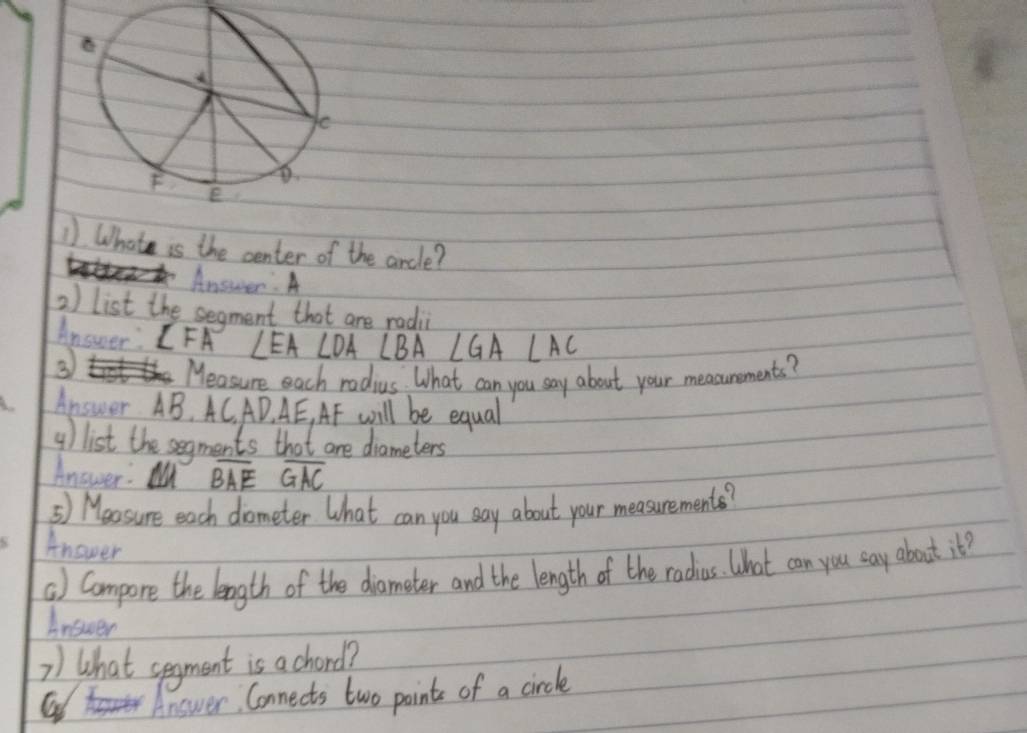 B
A
C
F
E
D.
1) What is the center of the circle?
Answer: A
2) List the segment that are radii
Answer: ∠FA ∠EA ∠DA ∠BA ∠GA ∠AC
3) Measure each radius. What can you say about your measurements?
Answer AB, AC, AD, AE, AF will be equal
4) list the segments that are diameters
Answer: BAE GAC
5) Measure each diameter. What can you say about your measurements?
Answer
6) Compare the length of the diameter and the length of the radius. What can you say about it?
Answer
7) What segment is a chord?
Answer: Connects two points of a circle